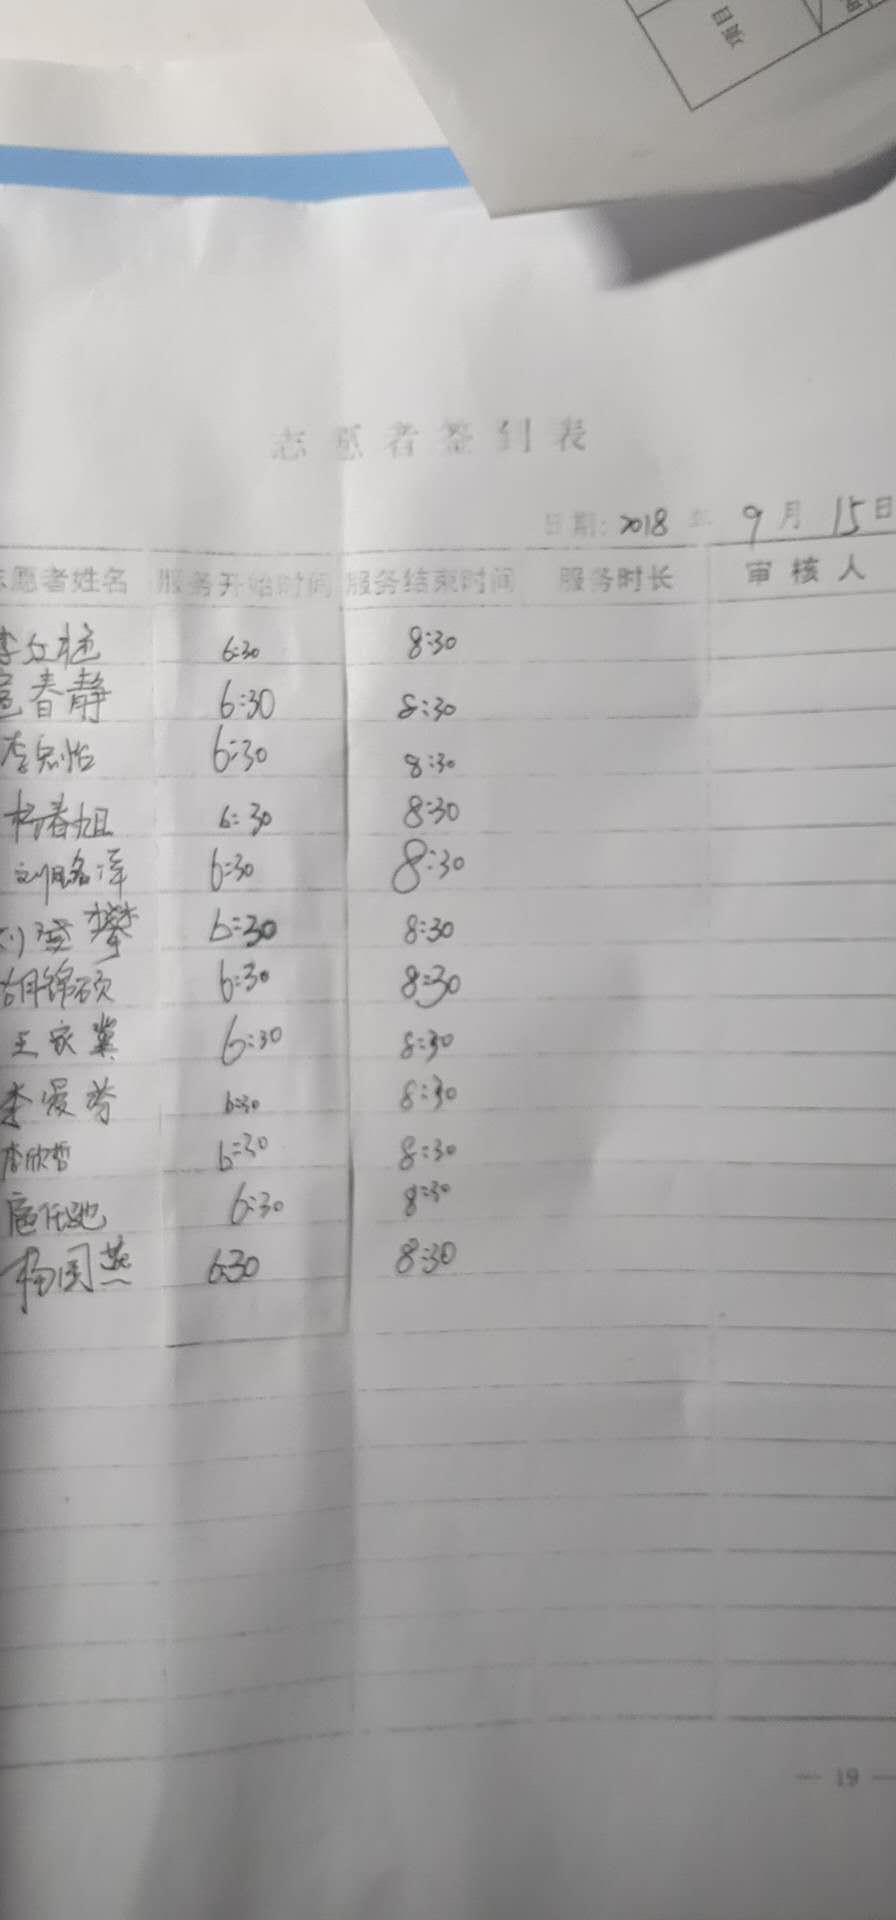 项目
志愿者签到表
日期: 2018 年 9 月 15 日
愿者姓名 服务开始时间 服务结束时间 服务时长 审核人
6:30 8:30
春静 6:30 8:30
李 怡 6:30 8:30
杨春旭 6:30 8:30
6:30 8:30
刘 攀 6:30 8:30
胡锦硕 6:30 8:30
王家冀 6:30 8:30
李爱芬 6:30 8:30
李欣哲 6:30 8:30
6:30 8:30
杨国燕 6:30 8:30
— 19 —